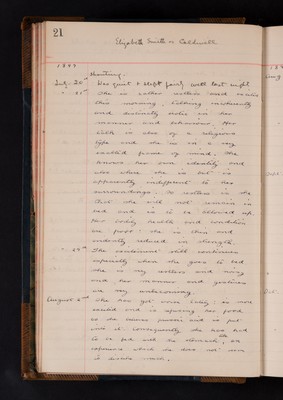 21
Elizabeth Smith or Caldwell
1899
July 20th Was quiet & slept fairly well last night
" 21st She is rather restless and
this morning, talking incoherently
and evidently
manner and behaviour. Her
talk is also of a religious
type and she is in a very
exalted frame of mind. She
knows her own identity and
also where she is but is
apparently indifferent to her
surroundings. So restless is she
that she will not remain in
bed and so to be
Her bodily health and condition
are poor: she is thin and
evidently reduced in strength.
" The excitement still continues
especially when she goes to bed
she is very restless and noisy
and her manner and gestures
are very unbecoming.
August 2nd She has got worse lately: is more
excited and is refusing her food
so she means power is put
into it. Consequently she has had
to be fed with the stomach tube an
experience which she has not seem
to much.